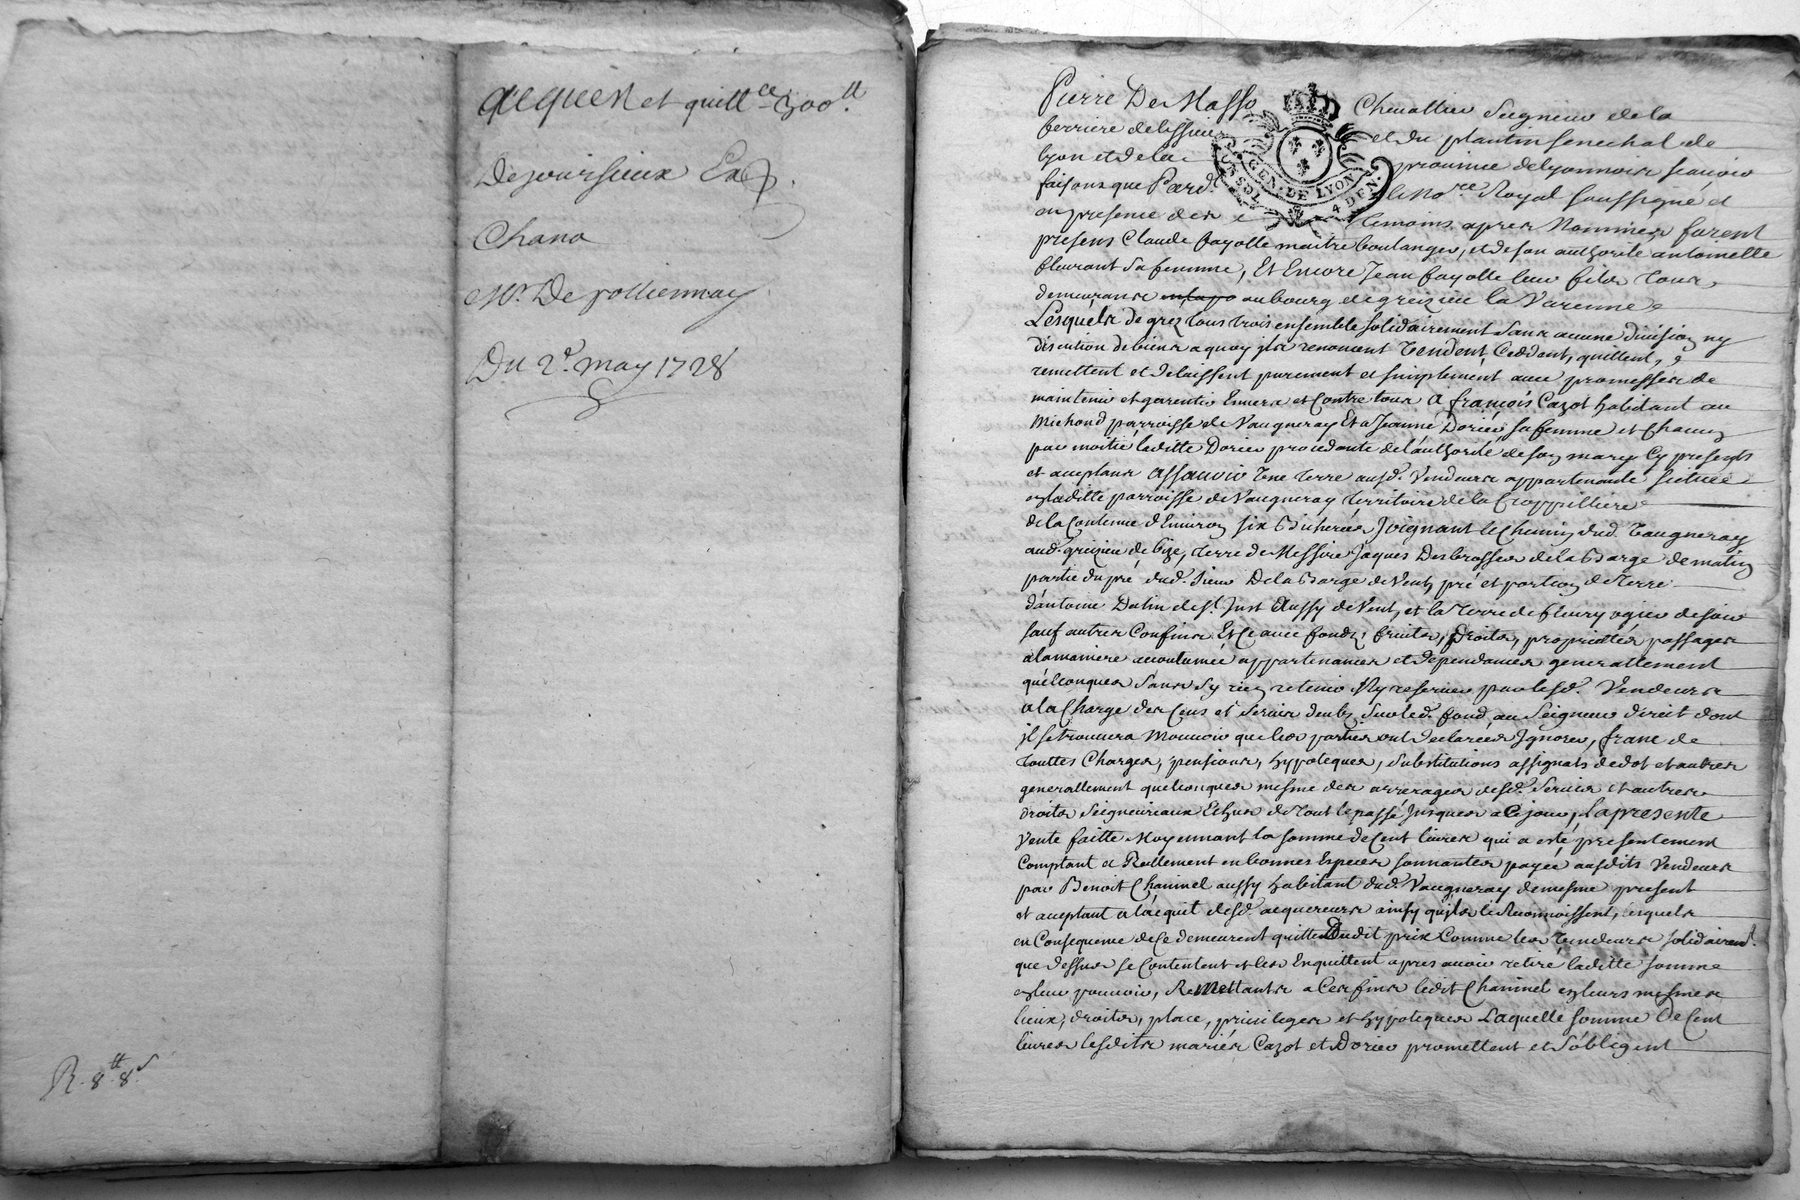 acquest et quitt.ce 300.tt
Dejoursieux
Chana
Mr. De polliennay
Du 2.e may 1728
R. 8tt 8.s
Pierre De Masso Chevallier Seigneur de la
ferriere delissieu et du plantin senechal de
lyon et de la province de lyonnois scavoir
faisons que Pard.t le No.re Royal soussigné et
en presence des temoins apres Nommés furent
presens Claude fayolle maitre boulanger, et de son authorité antoinette
fleurant sa femme, Et Encore Jean fayolle leur fils tous
demeurans au bourg de greizieu la Varenne
Lesquels de gréz tous trois ensemble solidairement sans aucune division ny
discution de biens a quoy ils renoncent Vendent, Ceddent, quittent,
remettent et delaissent purement et simplement avec promesses de
maintenir et garentir Envers et Contre tous A françois Cazot habitant au
Michond parroisse de Vaugneray Et a Jeanne Dorier sa femme et Chacun
par moitié laditte Dorier procedante de l'authorité de son mary Cy presents
et acceptans Assavoir Une terre ausd. Vendeurs appartenante scituée
en laditte parroisse de Vaugneray territoire de la
de la Contenue d'Environ six Bicherées Joignant le Chemin dud. Vaugneray
aud. greizieu de bize, terre de Messire Jaques Desbrosses de la Barge de matin
partie du pré dud. sieur De la Barge de Vent, pré et portion de terre
d'antoine Dutin de s.t Just Aussy de Vent, et la terre de fleury ogier de soir
sauf autres Confins Et Ce avec fonds, fruits, Droits, proprietés passages
a la maniere accoutumée appartenances et dependances generallement
quelconques sans s'y rien retenir Ny reserver par lesd. Vendeurs
a la Charge des Cens et Servis deubs sur led. fond au Seigneur direct dont
il se trouvera Mouvoir que les parties ont declarées Ignorer, franc de
touttes Charges, pensions, hypoteques, substitutions assignats de dot et autres
generallement quelconques mesme des arrerages desd. Servis et autres
droits Seigneuriaux Echus de tout le passé Jusques a Ce jour, La presente
Vente faitte Moyennant la somme de Cent livres qui a esté presentement
Comptant et Réellement en bonnes Especes sonnantes payée ausdits Vendeurs
par Benoit Chaninel aussy habitant dud. Vaugneray de mesme present
et acceptant a l'acquit desd. acquereurs ainsy qu'ils le Reconnoissent, lesquels
en Consequence de Ce demeurent quittes Dudit prix Comme les Vendeurs solidairem.t
que dessus se Contentent et les Enquittent apres avoir retiré laditte somme
en leur pouvoir, Remettants a Ces fins ledit Chaninel en leurs mesmes
lieux, droits, place, privileges et hypoteques Laquelle somme De Cent
livres lesdits mariés Cazot et Dorier promettent et s'obligent
GEN. DE LYON
4 DEN.